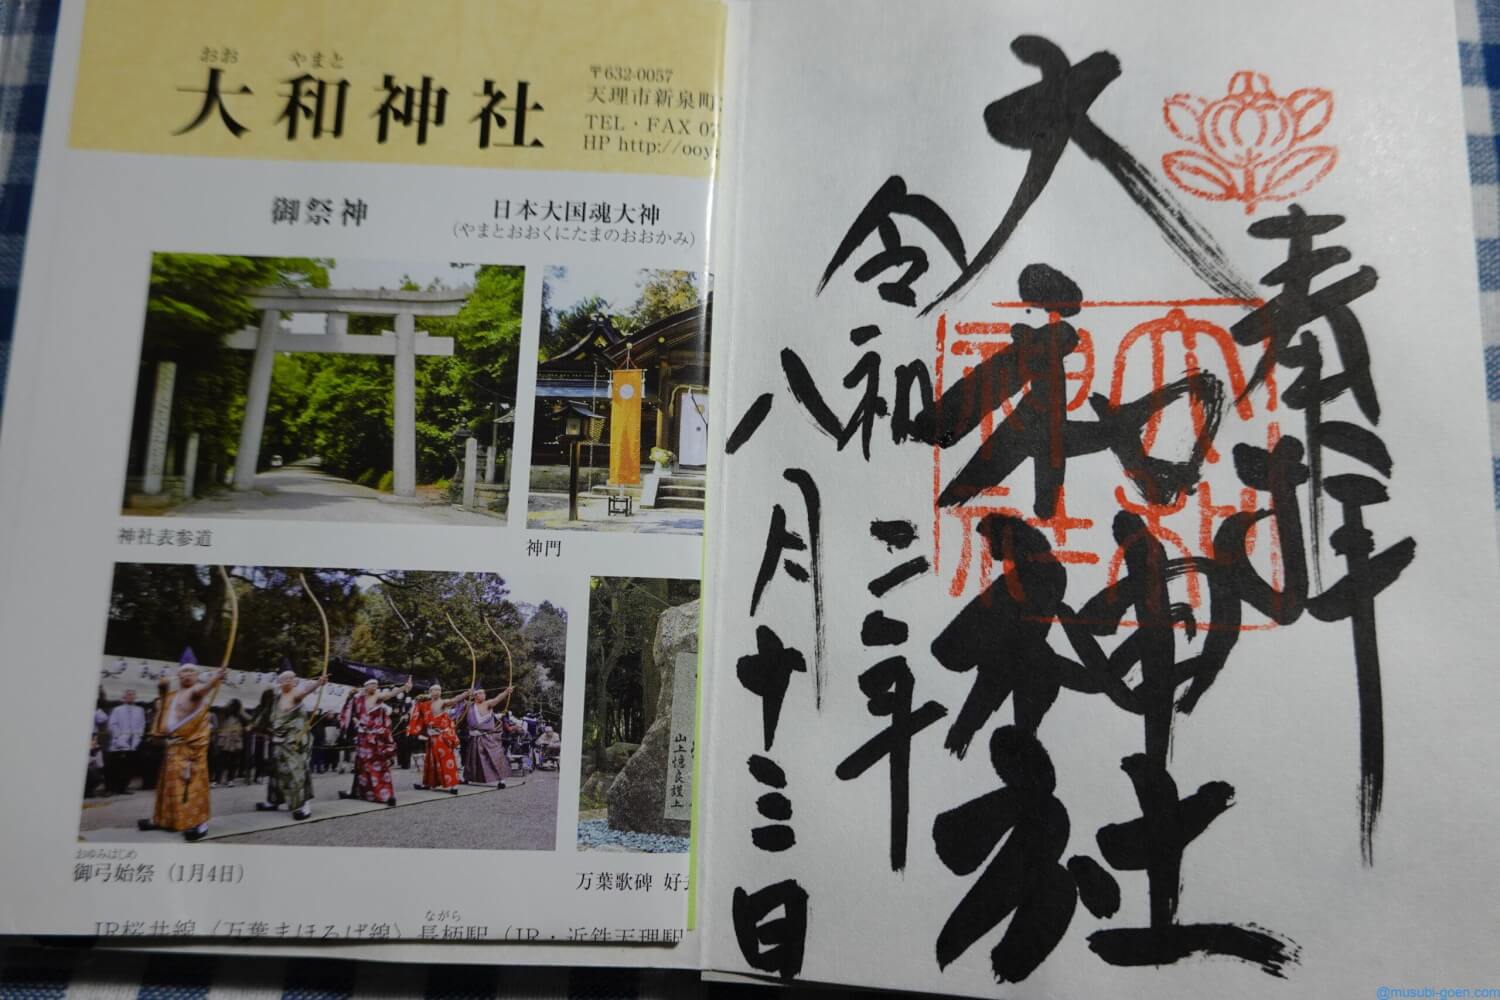 おお やまと
大和神社
〒632-0057
天理市新泉町
TEL・FAX 07
HP http://ooy
御祭神
日本大国魂大神
(やまとおおくにたまのおおかみ)
神社表参道
神門
山上憶良謹上
おゆみはじめ
御弓始祭（1月4日）
万葉歌碑 好去
ながら
JR桜井線（万葉まほろば線）長柄駅（JR・近鉄天理駅
奉拝
大和神社
大和神社
令和二年
八月十三日
@musubi-goen.com